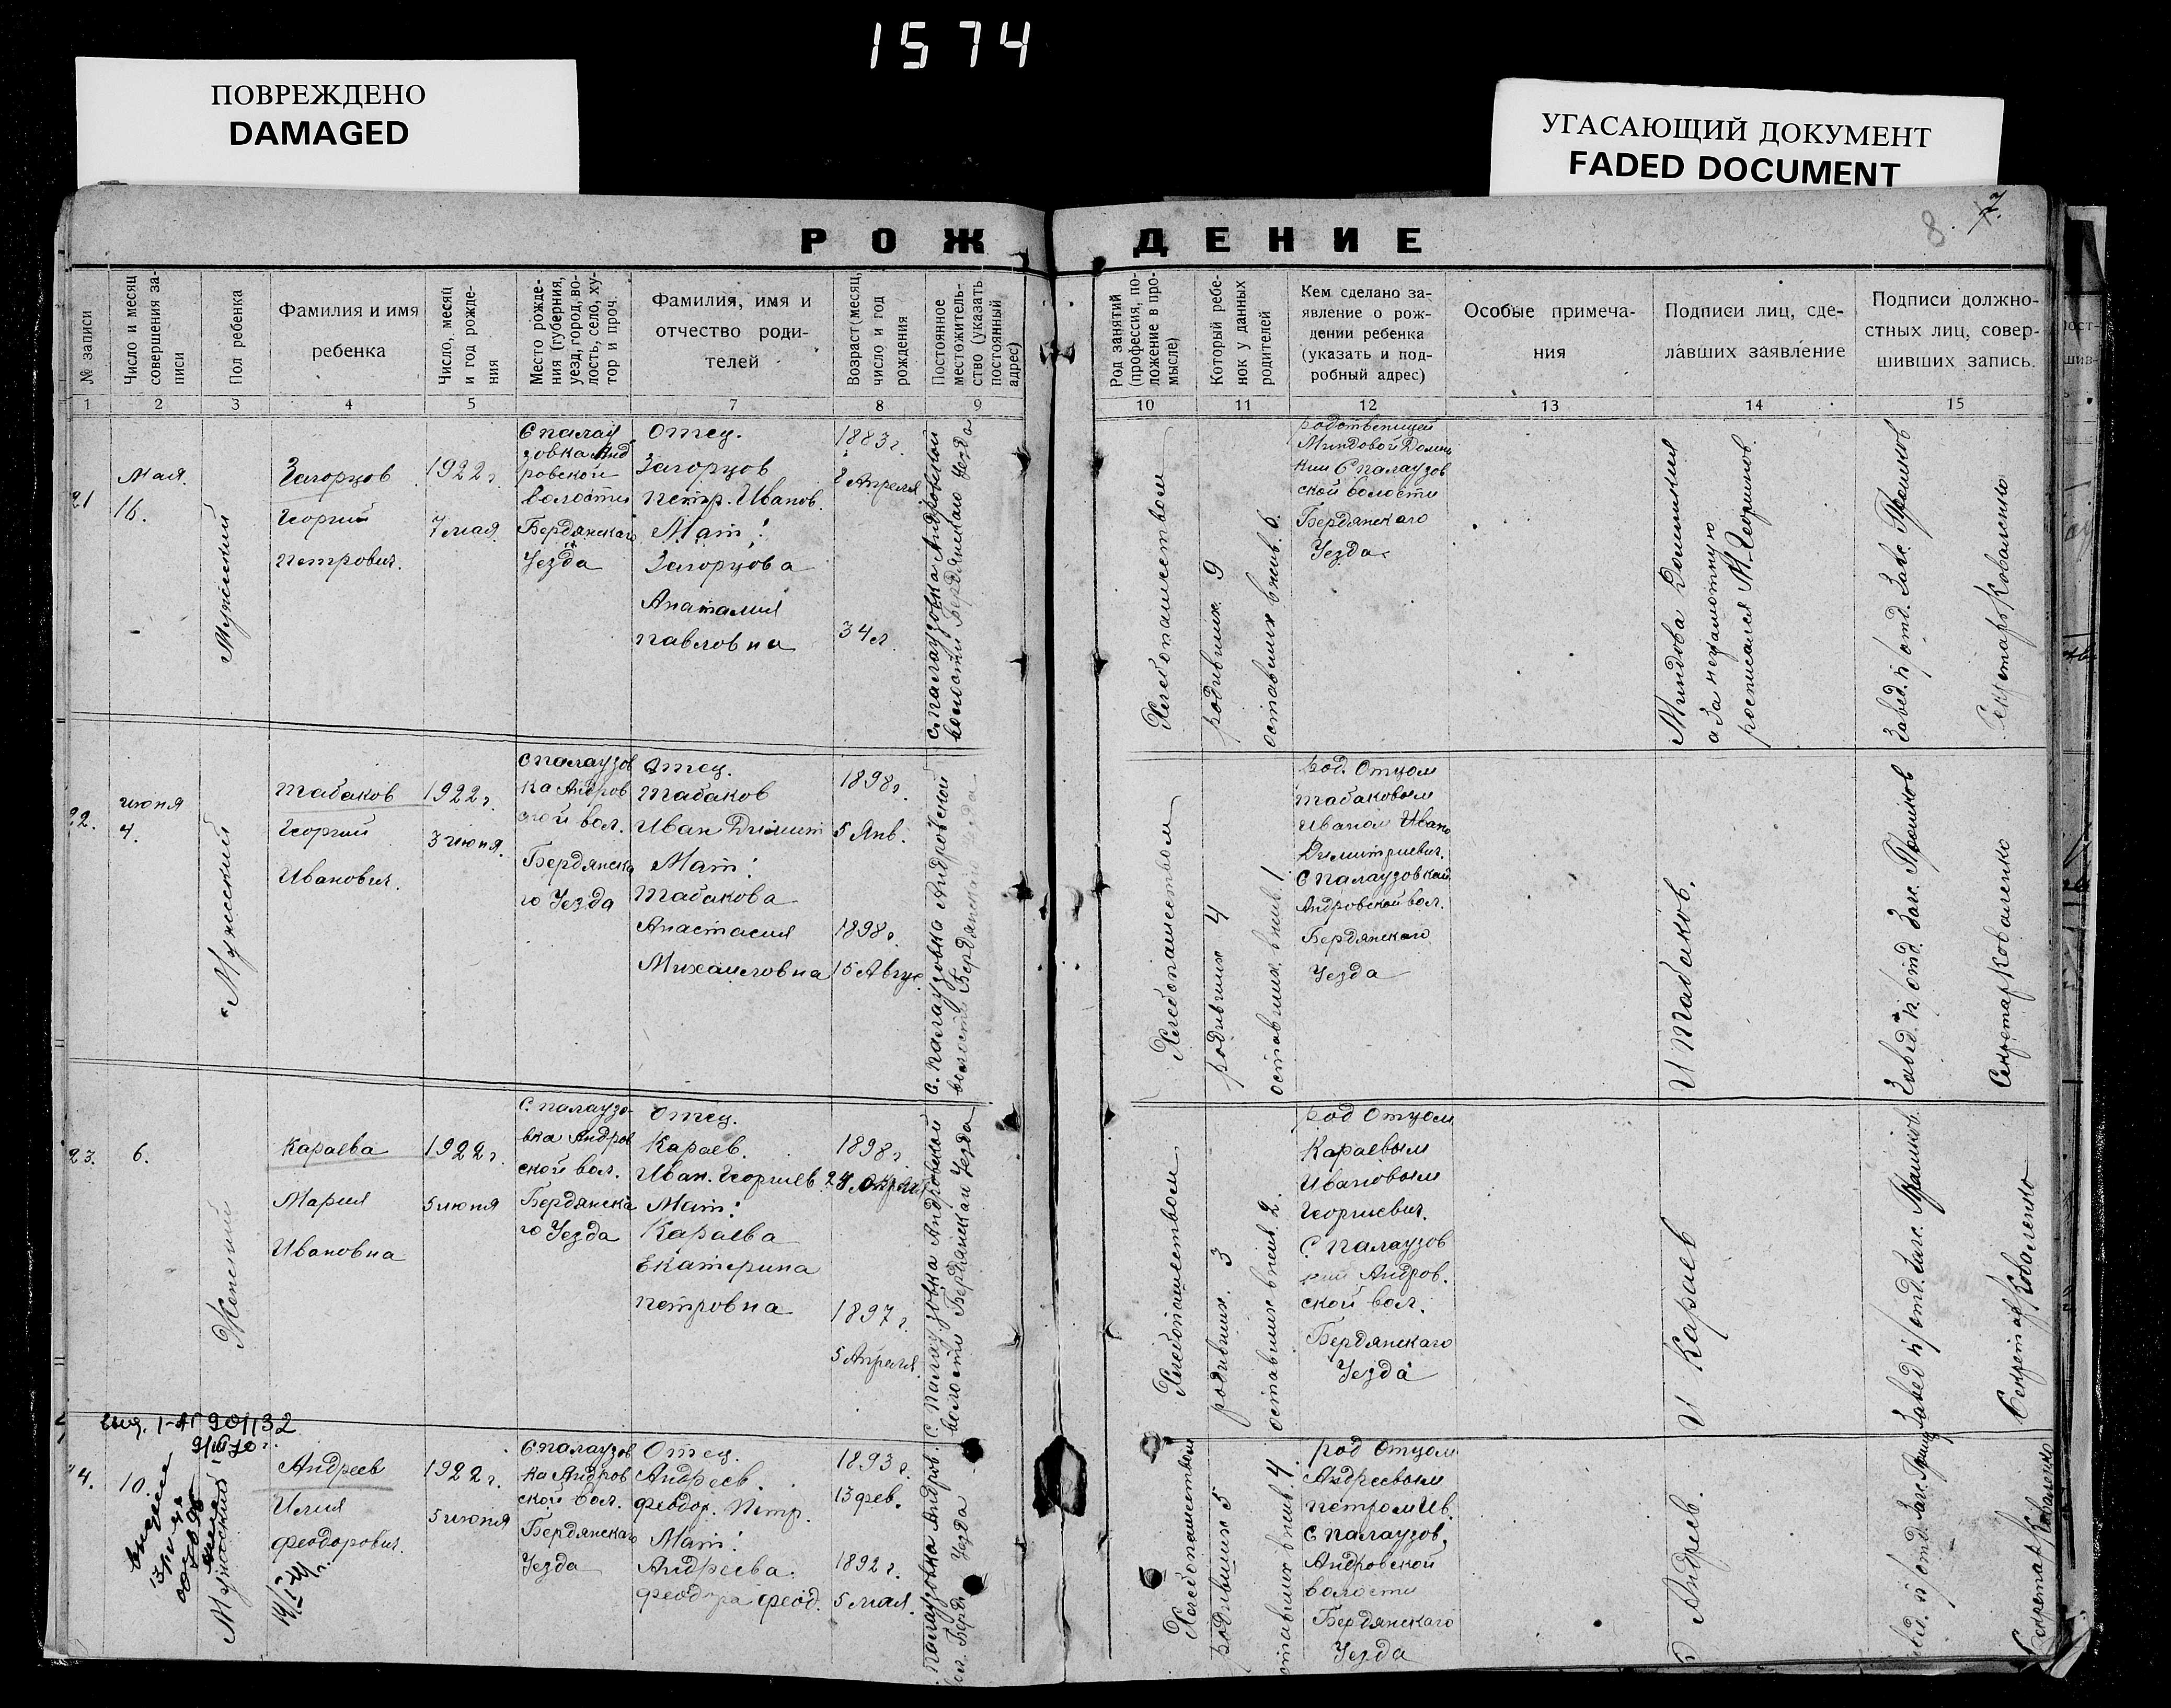 1574
ПОВРЕЖДЕНО
DAMAGED
УГАСАЮЩИЙ ДОКУМЕНТ
FADED DOCUMENT
8. 7.
РОЖДЕНИЕ
№ записи
Число и месяц
совершения за-
писи
Пол ребенка
Фамилия и имя
ребенка
Число, месяц
и год рожде-
ния
Место рожде-
ния (губерния,
уезд, город, во-
лость, село, ху-
тор и проч
Фамилия, имя и
отчество роди-
телей
Возраст (месяц,
число и год
рождения
Постоянное
местожитель-
ство (указать
постоянный
адрес)
Род занятий
(профессия, по-
ложение в про-
мысле)
Который ребе-
нок у данных
родителей
Кем сделано за-
явление о рож-
дении ребенка
(указать и под-
робный адрес)
Особые примеча-
ния
Подписи лиц, сде-
лавших заявление
Подписи должно-
стных лиц, совер-
шивших запись.
1 2 3 4 5 7 8 9 10 11 12 13 14 15
21
Мая.
16.
Мужеский
Загорцов
Георгий
Петрович.
1922 г.
7 мая
С палау
зовка Анд
ровской
волости
Бердянскаго
Уезда
Отец.
Загорцов
Петр. Иванов.
Мат:
Загорцова
Анаталия
Павловна
1883 г.
2 Апреля
34 л.
С. Палаузовка Андровской
волости Бердянскаго Уезда
Хлебопашеством
родивших 9
оставших в жив. 6.
Миндовой Домни
кии С палаузов
ской волости
Бердянскаго
Уезда
Миндова Домникия
а за неграмотную
росписался М. Георгинов.
Завед. п/отд. Загс.
Секретарь Коваленко
22.
июня
4.
Мужеский
Табаков
Георгий
Иванович.
1922 г.
3 июня.
С палаузов
ка Андров
ской вол.
Бердянска
го Уезда
Отец.
Табаков
Иван Димит
Мат:
Табакова
Анастасия
Михаиловна
1898 г.
5 Янв.
1898 г.
15 Авгус.
С. Палаузовка Андровской
волости Бердянскаго Уезда
Хлебопашеством
родивших 4
оставших. в жив. 1.
род. Отцом
Табаковым
Иваном Ивано
Димитриевич.
С палаузовкой
Андровской вол.
Бердянскаго
Уезда
И Табаков.
Завед. п/отд. Загс.
Секретарь Коваленко
23.
6.
Женский
Караева
Мария
Ивановна
1922 г.
5 июня
С. палаузо-
вка Андров
ской вол.
Бердянска
го Уезда
Отец.
Караев.
Иван. Георгиев.
Мат:
Караева
Екатерина
Петровна
1898 г.
1897 г.
5 Апреля.
С. Палаузовка Андровской
волости Бердянскаго Уезда
Хлебопашеством
родивших. 3
оставших в жив. 2.
род Отцом
Караевым
Ивановым
Георгиевич.
С палаузов
Андров.
ской вол.
Бердянскаго
Уезда
И Караев
Завед п/отд. Загс.
Секретар Коваленко
24.
10.
Мужеский
Андреев
Илия
Феодорович.
1922 г.
5 июня
С палаузов
ка Андров
ской вол.
Бердянскаго
Уезда
Отец.
Андреев.
Феодор. Петр.
Мат:
Андреева.
Феодора Феод.
1893 г.
13 фев.
1892 г.
5 мая.
Палаузовка Андров.
вол. Берд. Уезда
Хлебопашеством
родивших 5
оставших в жив. 4.
род Отцом
Андреевым
Петром Ив.
С палаузов,
Андровской
волости
Бердянскаго
Уезда
Андреев.
Секретар Коваленко